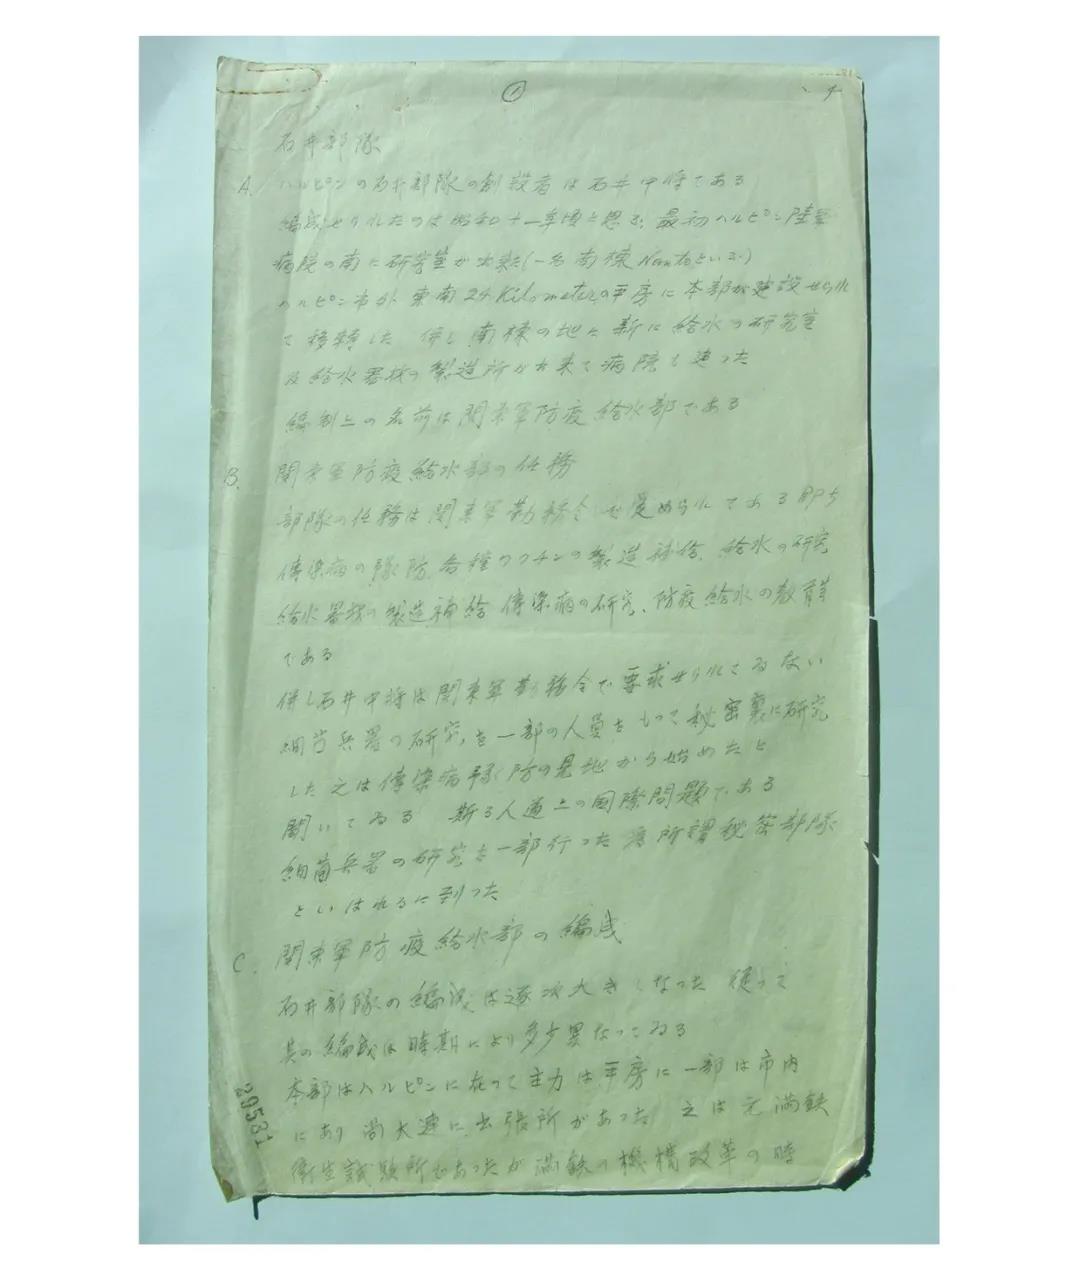 ①
石井部隊
A. ハルピンの石井部隊の創設者は石井中将である
編成せられたのは昭和十一年頃と思ふ 最初ハルピン陸軍
病院の南に研究室が出来た(一名 南棟 といふ)
ハルピン市外 東南24 Kilometerの平房に本部が建設せられ
て移転した 併し南棟の地に新に給水の研究室
及給水器材の製造所が出来て病院も建った
編制上の名前は関東軍防疫給水部である
B. 関東軍防疫給水部の任務
部隊の任務は関東軍勤務令で定められてある 即ち
傳染病の豫防、各種ワクチンの製造補給、給水の研究
給水器材の製造補給 傳染病の研究、防疫給水の教育等
である
併し石井中将は関東軍勤務令で要求せられてゐない
細菌兵器の研究を一部の人員をもって秘密裏に研究
した 之は傳染病豫防の見地から始めたと
聞いてゐる 斯る人道上の国際問題である
細菌兵器の研究を一部行った為所謂秘密部隊
といはれるに到った
C. 関東軍防疫給水部の編成
石井部隊の編成は逐次大きくなった 従って
其の編成は時期により多少異なってゐる
本部はハルピンに在って主力は平房に一部は市内
にあり 尚大連に出張所があった 之は元満鉄
衛生試験所であったが満鉄の機構改革の時
29531